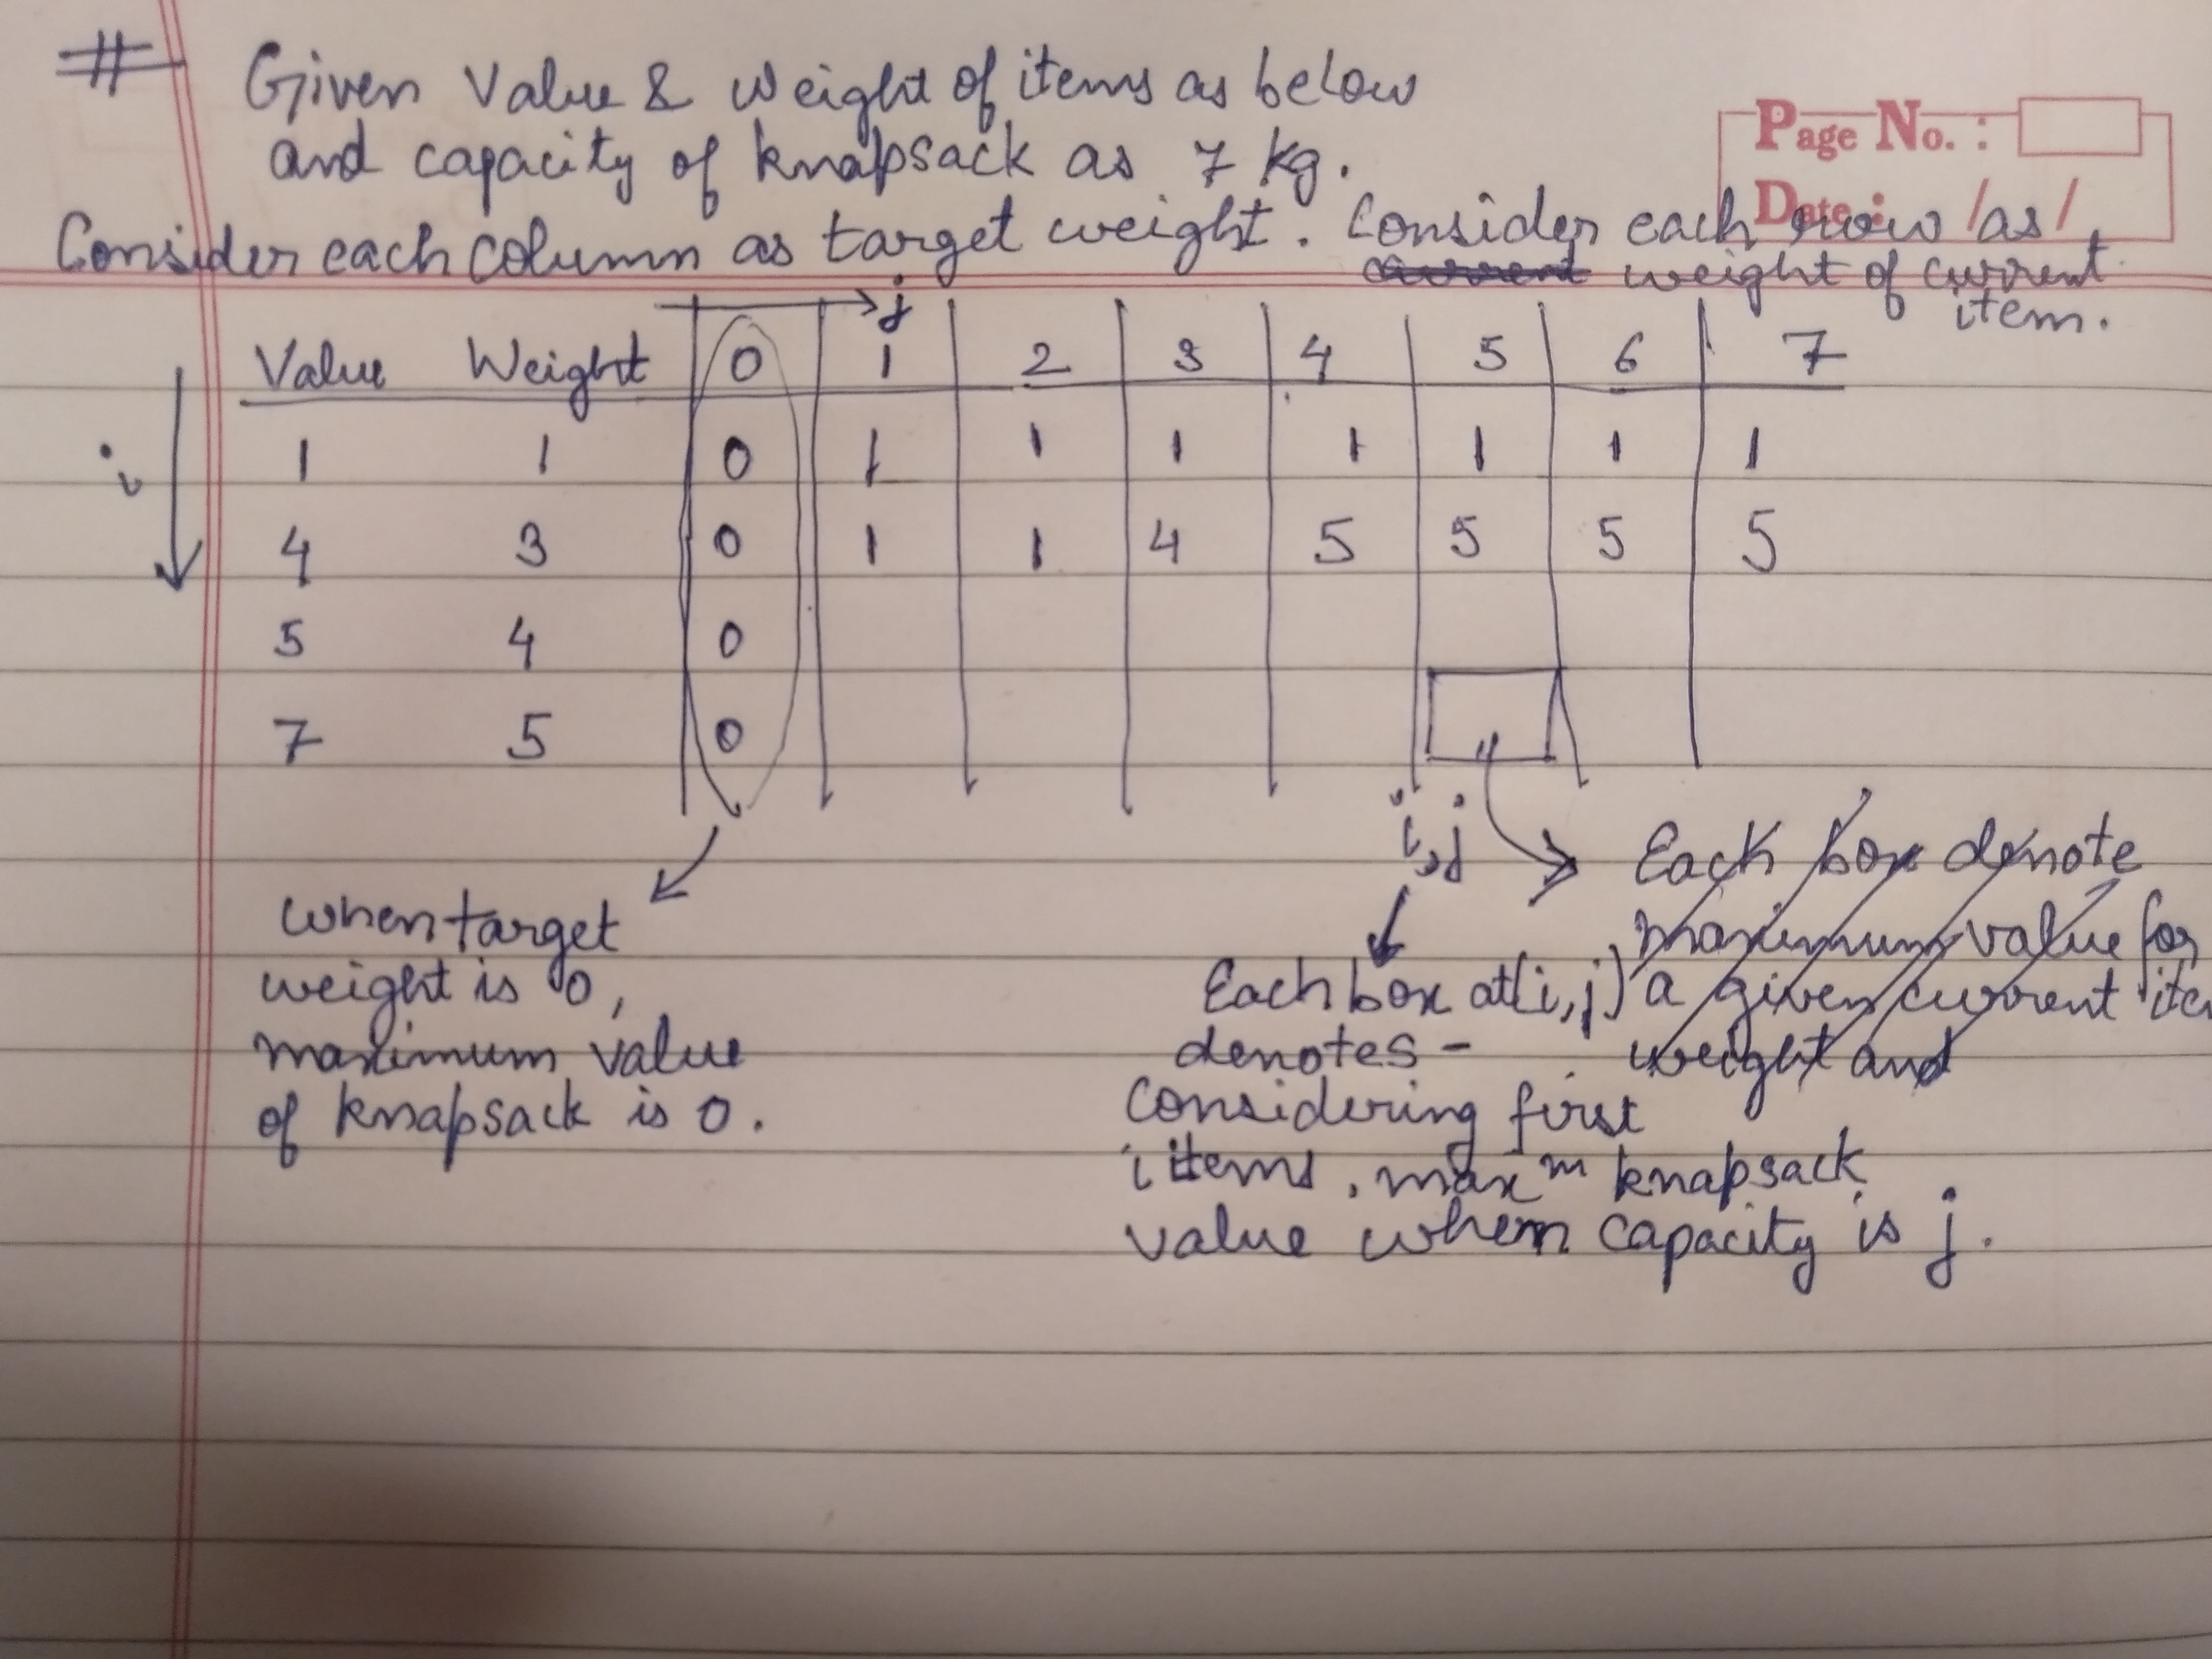 # Given Value & Weight of items as below
and capacity of knapsack as 7 kg.
Page No. :
Date : / /
Consider each column as target weight. Consider each row as
current weight of current
item.
j
Value Weight 0 1 2 3 4 5 6 7
i
1 1 0 1 1 1 1 1 1 1
4 3 0 1 1 4 5 5 5 5
5 4 0
7 5 0
i,j
when target
weight is 0,
maximum value
of knapsack is 0.
Each box denote
maximum value for
a given current
weight and
Each box at (i, j)
denotes -
Considering first
i items, maxm knapsack
value when capacity is j.